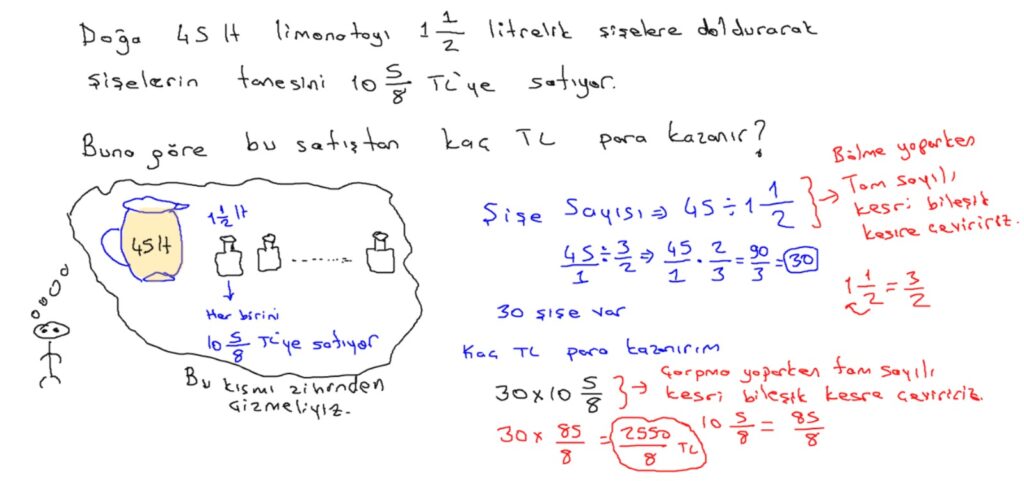 Doğa 45 lt limonatayı 1 1/2 litrelik şişelere doldurarak
şişelerin tanesini 10 5/8 TL'ye satıyor.
Buna göre bu satıştan kaç TL para kazanır?
45 lt
1 1/2 lt
Her birini
10 5/8 TL'ye satıyor
Bu kısmı zihinden
çizmeliyiz.
Şişe Sayısı ⇒ 45 ÷ 1 1/2
Bölme yaparken
Tam sayılı
kesri bileşik
kesire çeviririz.
45/1 ÷ 3/2 ⇒ 45/1 . 2/3 = 90/3 = 30
1 1/2 = 3/2
30 şişe var
Kaç TL para kazanırım
30 x 10 5/8
Çarpma yaparken tam sayılı
kesri bileşik kesre çeviririz.
30 x 85/8 = 2550/8 TL
10 5/8 = 85/8